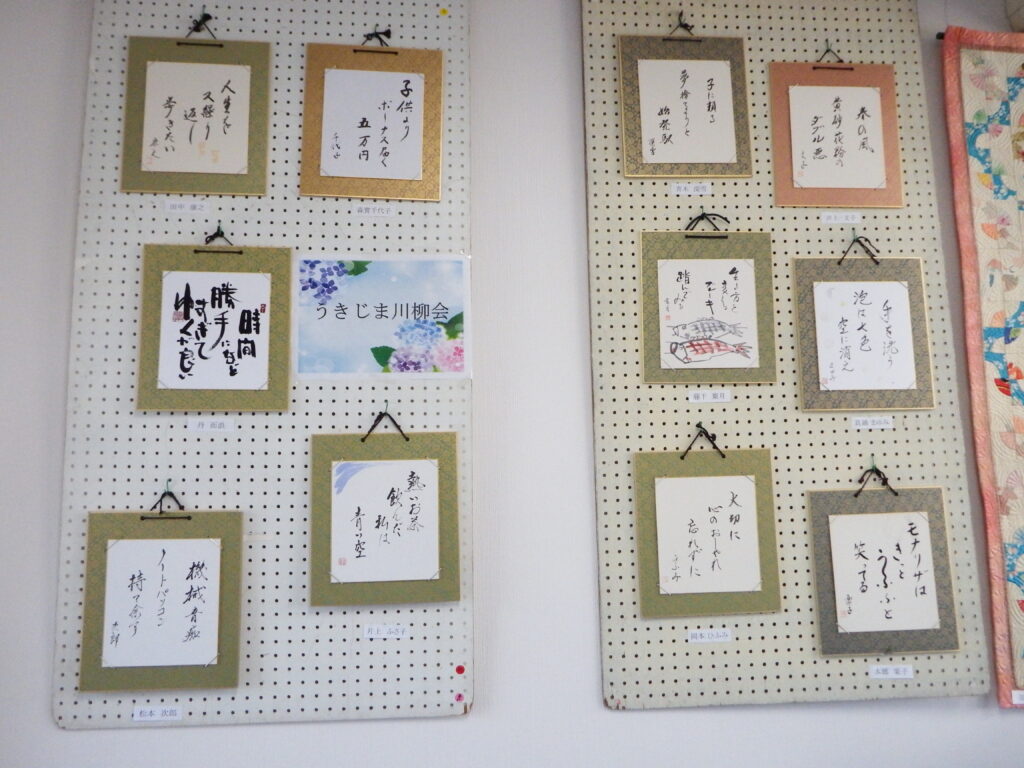 人生を
くり
返し
歩きたい
子供より
ボーナス届く
五万円
千代子
森實千代子
時間
勝手になど
すぎて
ゆくが良い
うきじま川柳会
熱いお茶
飲んだ
私は
青い空
井上 ふさ子
機械音痴
ノートパソコン
持て余す
松本 次郎
子に頼る
夢捨てようと
始発駅
春の風
黄砂花粉の
ダブル悪
井上 文子
生き方と
エーキ
手を洗う
泡は七色
空に消え
まゆみ
大切に
心のおしゃれ
忘れずに
ひふみ
岡本 ひふみ
モナリザは
きっと
うふふふと
笑ってる